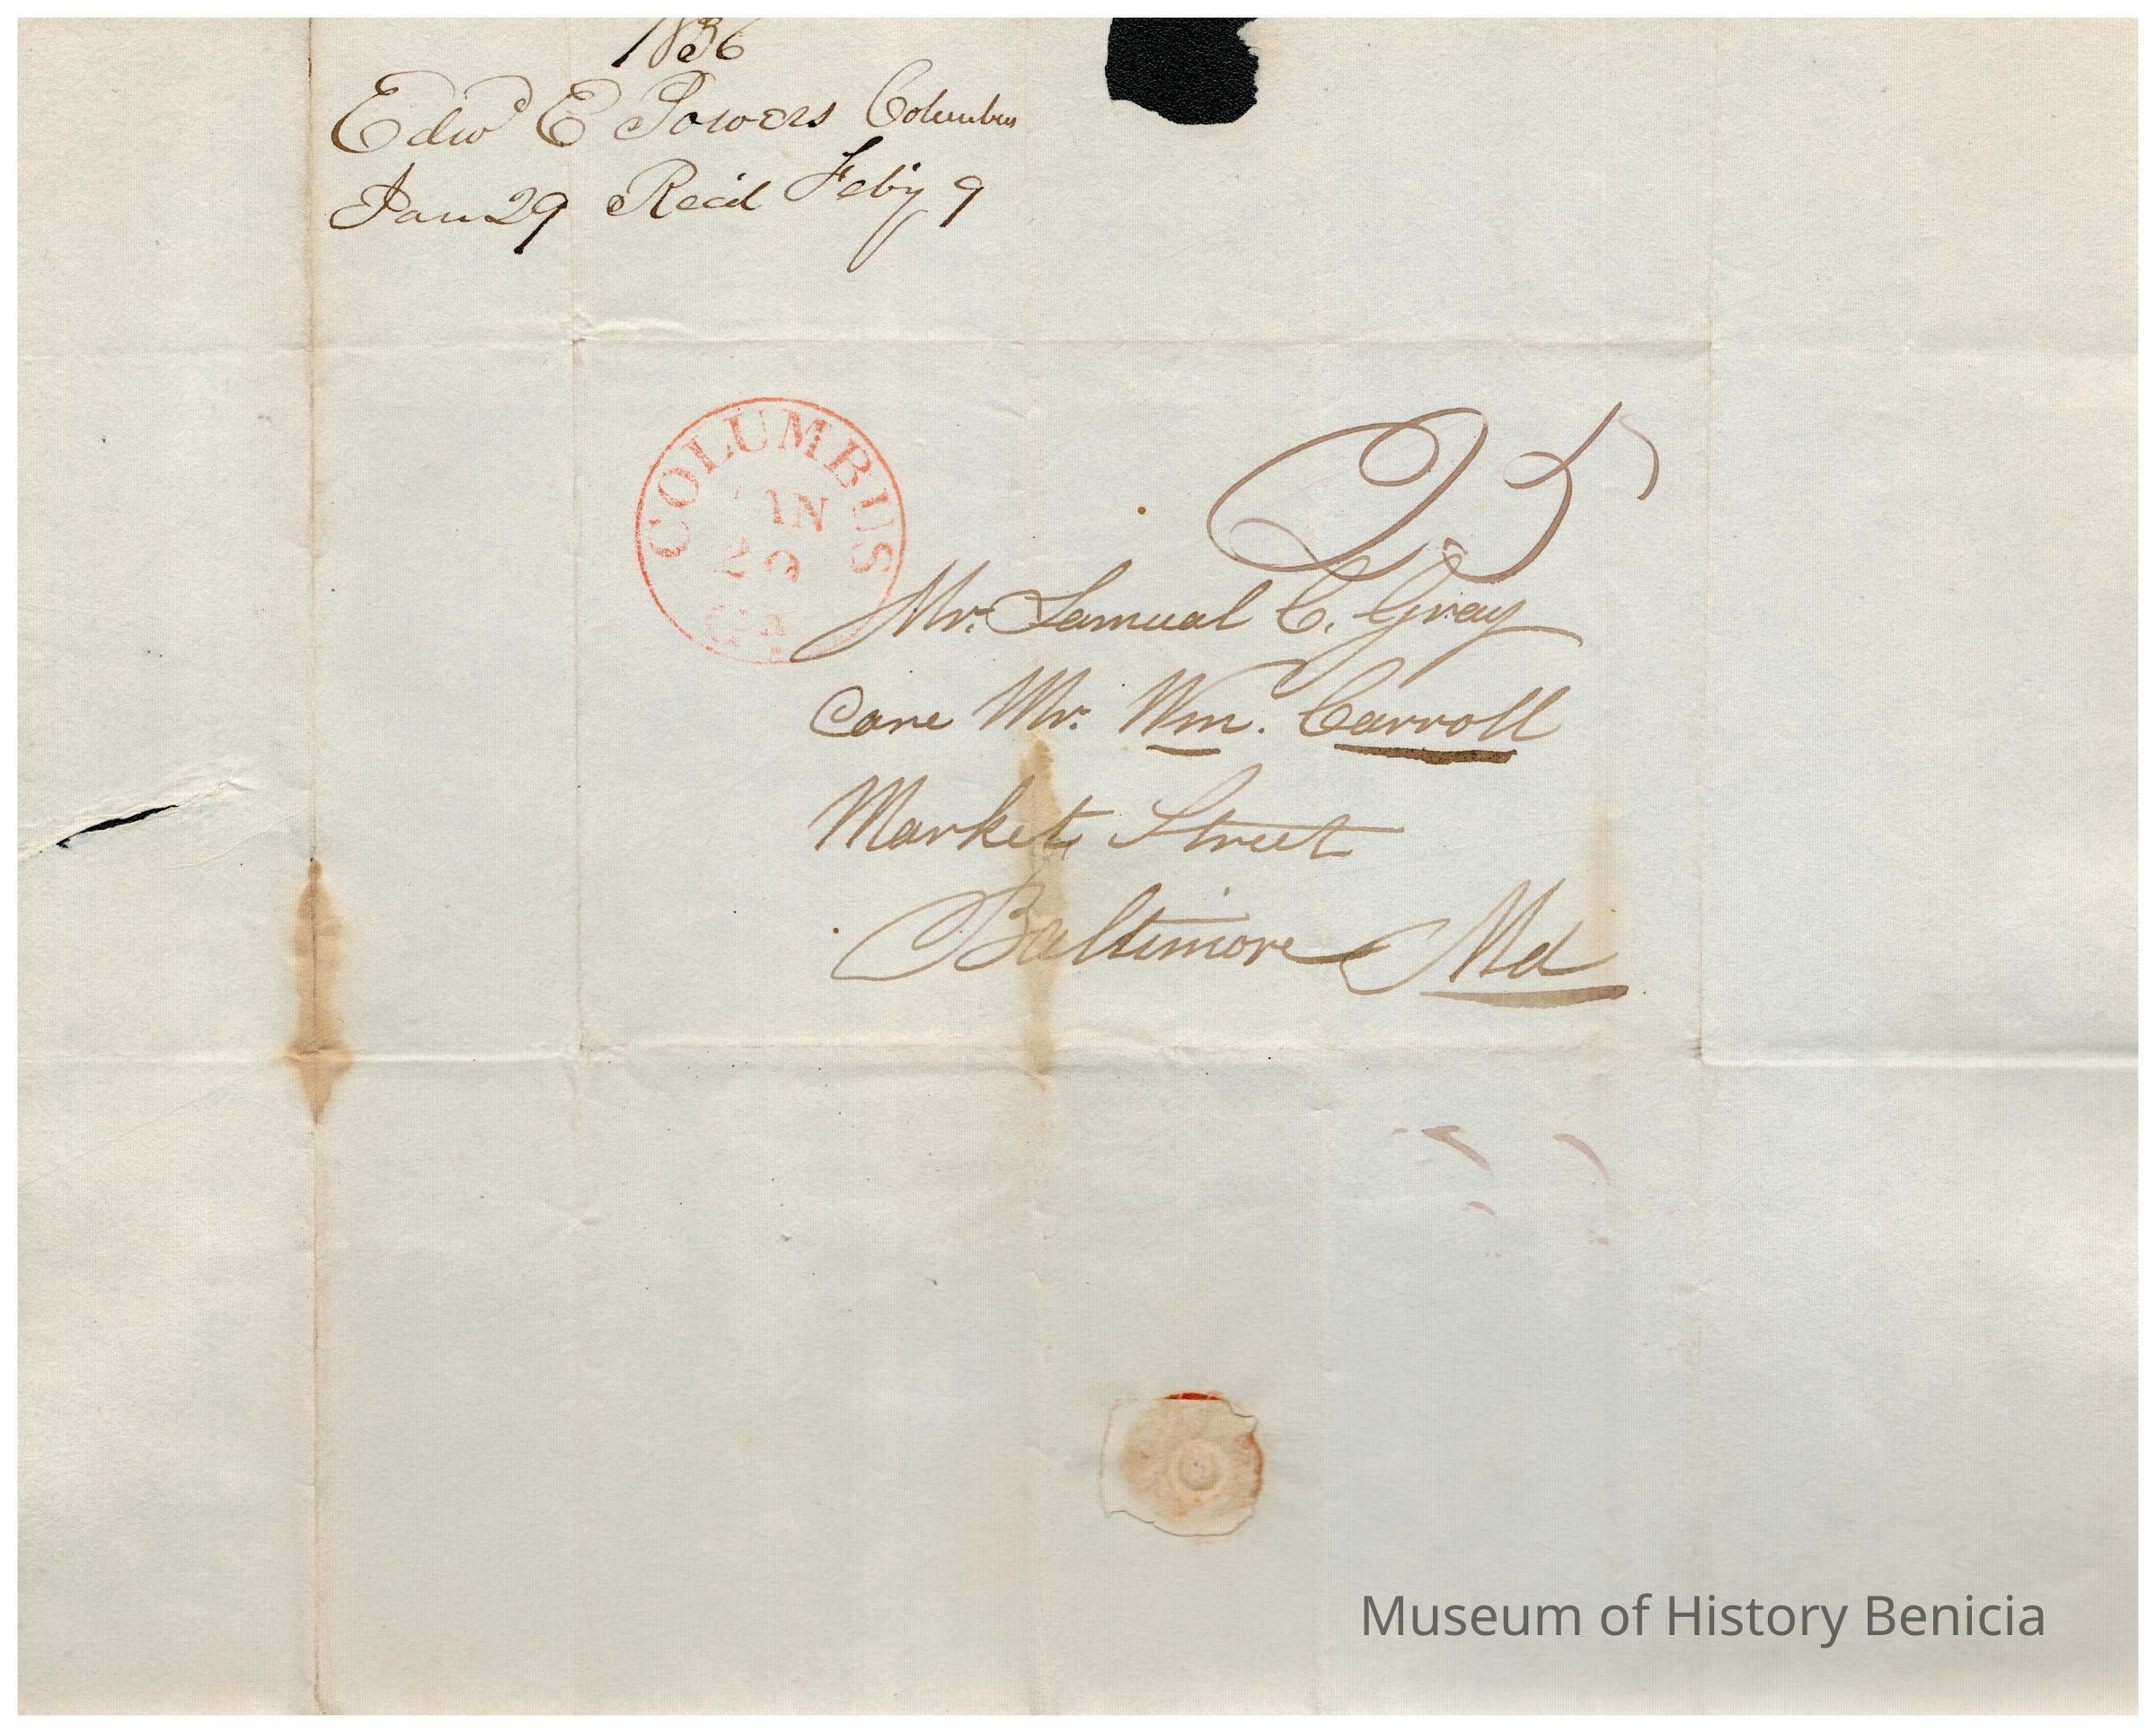 1836
Edwd E Powers Columbus
Jan 29 Recd Feby 9
COLUMBUS
JAN
29
GA
25
Mr. Samual C. Gray
Care Mr. Wm. Carroll
Market Street
Baltimore Md
Museum of History Benicia